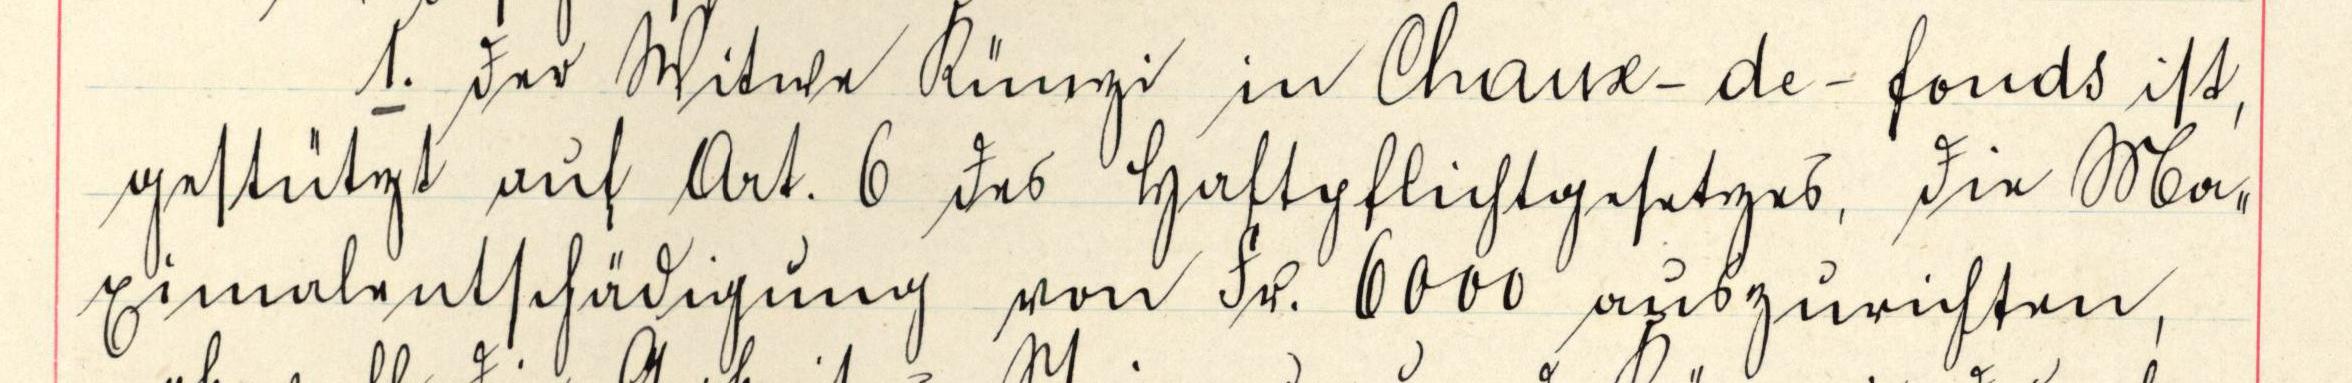 1. Der Witwe Künzi in Chaux-de-fonds ist,
gestützt auf Art. 6 des Haftpflichtgesetzes, die Ma„
ximalentschädigung von Fr. 6000 auszurichten,